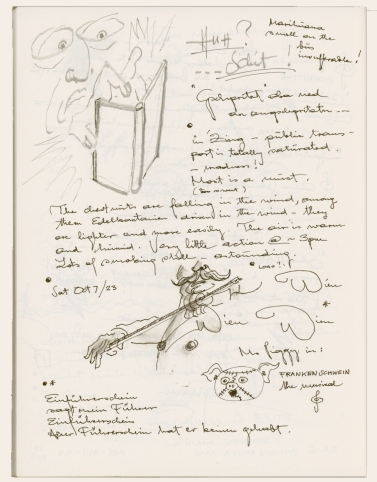 Marihuana
smell on the
bus
insufferable!
Huh?
---- Schit!
in Zing - public trans-
port is totally saturated.
- madness!
Most is a must.
The chestnuts are falling in the wind, among
them Edelkastanien driven in the wind - they
are lighter and more easily. The air is warm
and humid. Very little action @ ~ 3pm
Lots of smoking still - astounding.
Sat Oct 7/23
Logo?:
Wien
Wien Wien
*
Ms Piggy in:
FRANKENSCHWEIN
the musical
*
Einführerschein
sagt mein Führer
Einführerschein
Aber Führerschein hat er keinen gehabt.